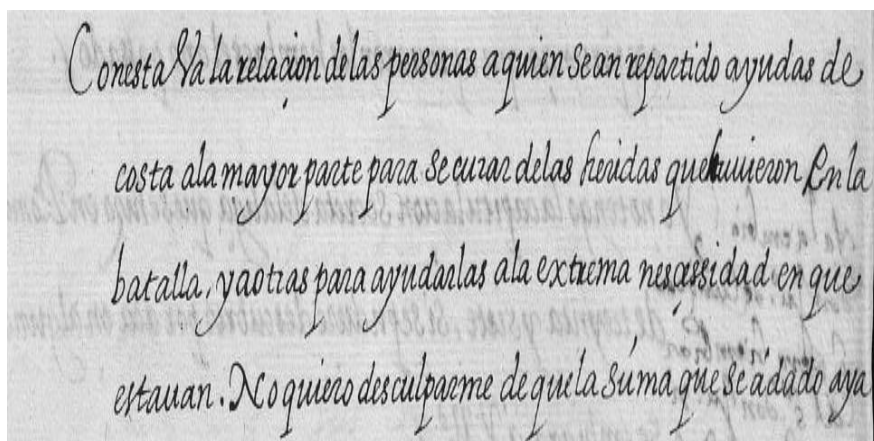 Conesta Va la relaçion delas personas aquien sean repartido ayudas de
costa ala mayor parte para se curar delas heridas que tuuieron En la
batalla, yaotras para ayudarlas ala extrema nesçessidad en que
estauan. No quiero desculparme de que la súma que se adado aya